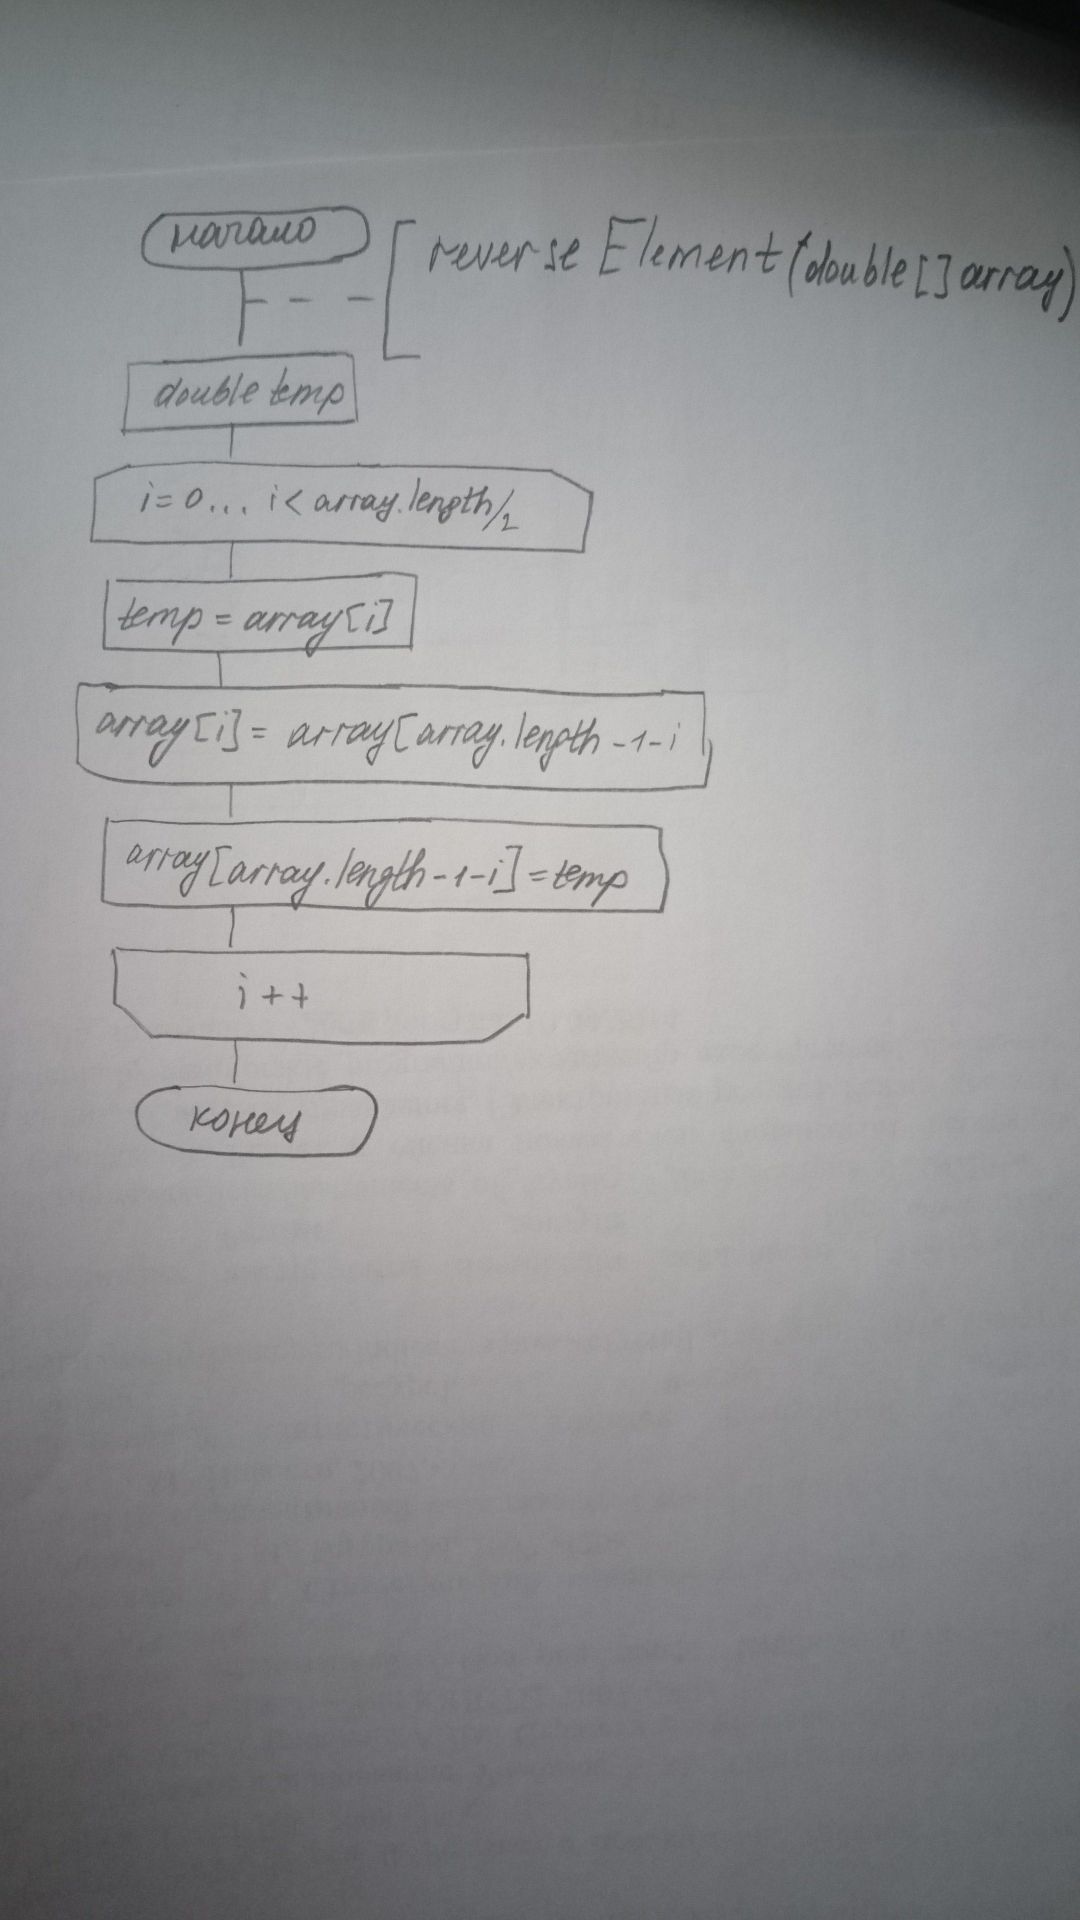 начало
reverse Element(double[] array)
double temp
i=0... i< array.length/2
temp = array[i]
array[i] = array[array.length-1-i
array[array.length-1-i]=temp
i++
конец